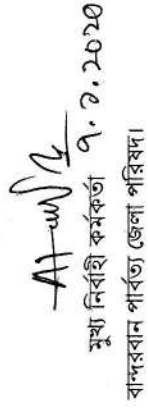 ৭.১.২০২০
মুখ্য নির্বাহী কর্মকর্তা
বান্দরবান পার্বত্য জেলা পরিষদ।